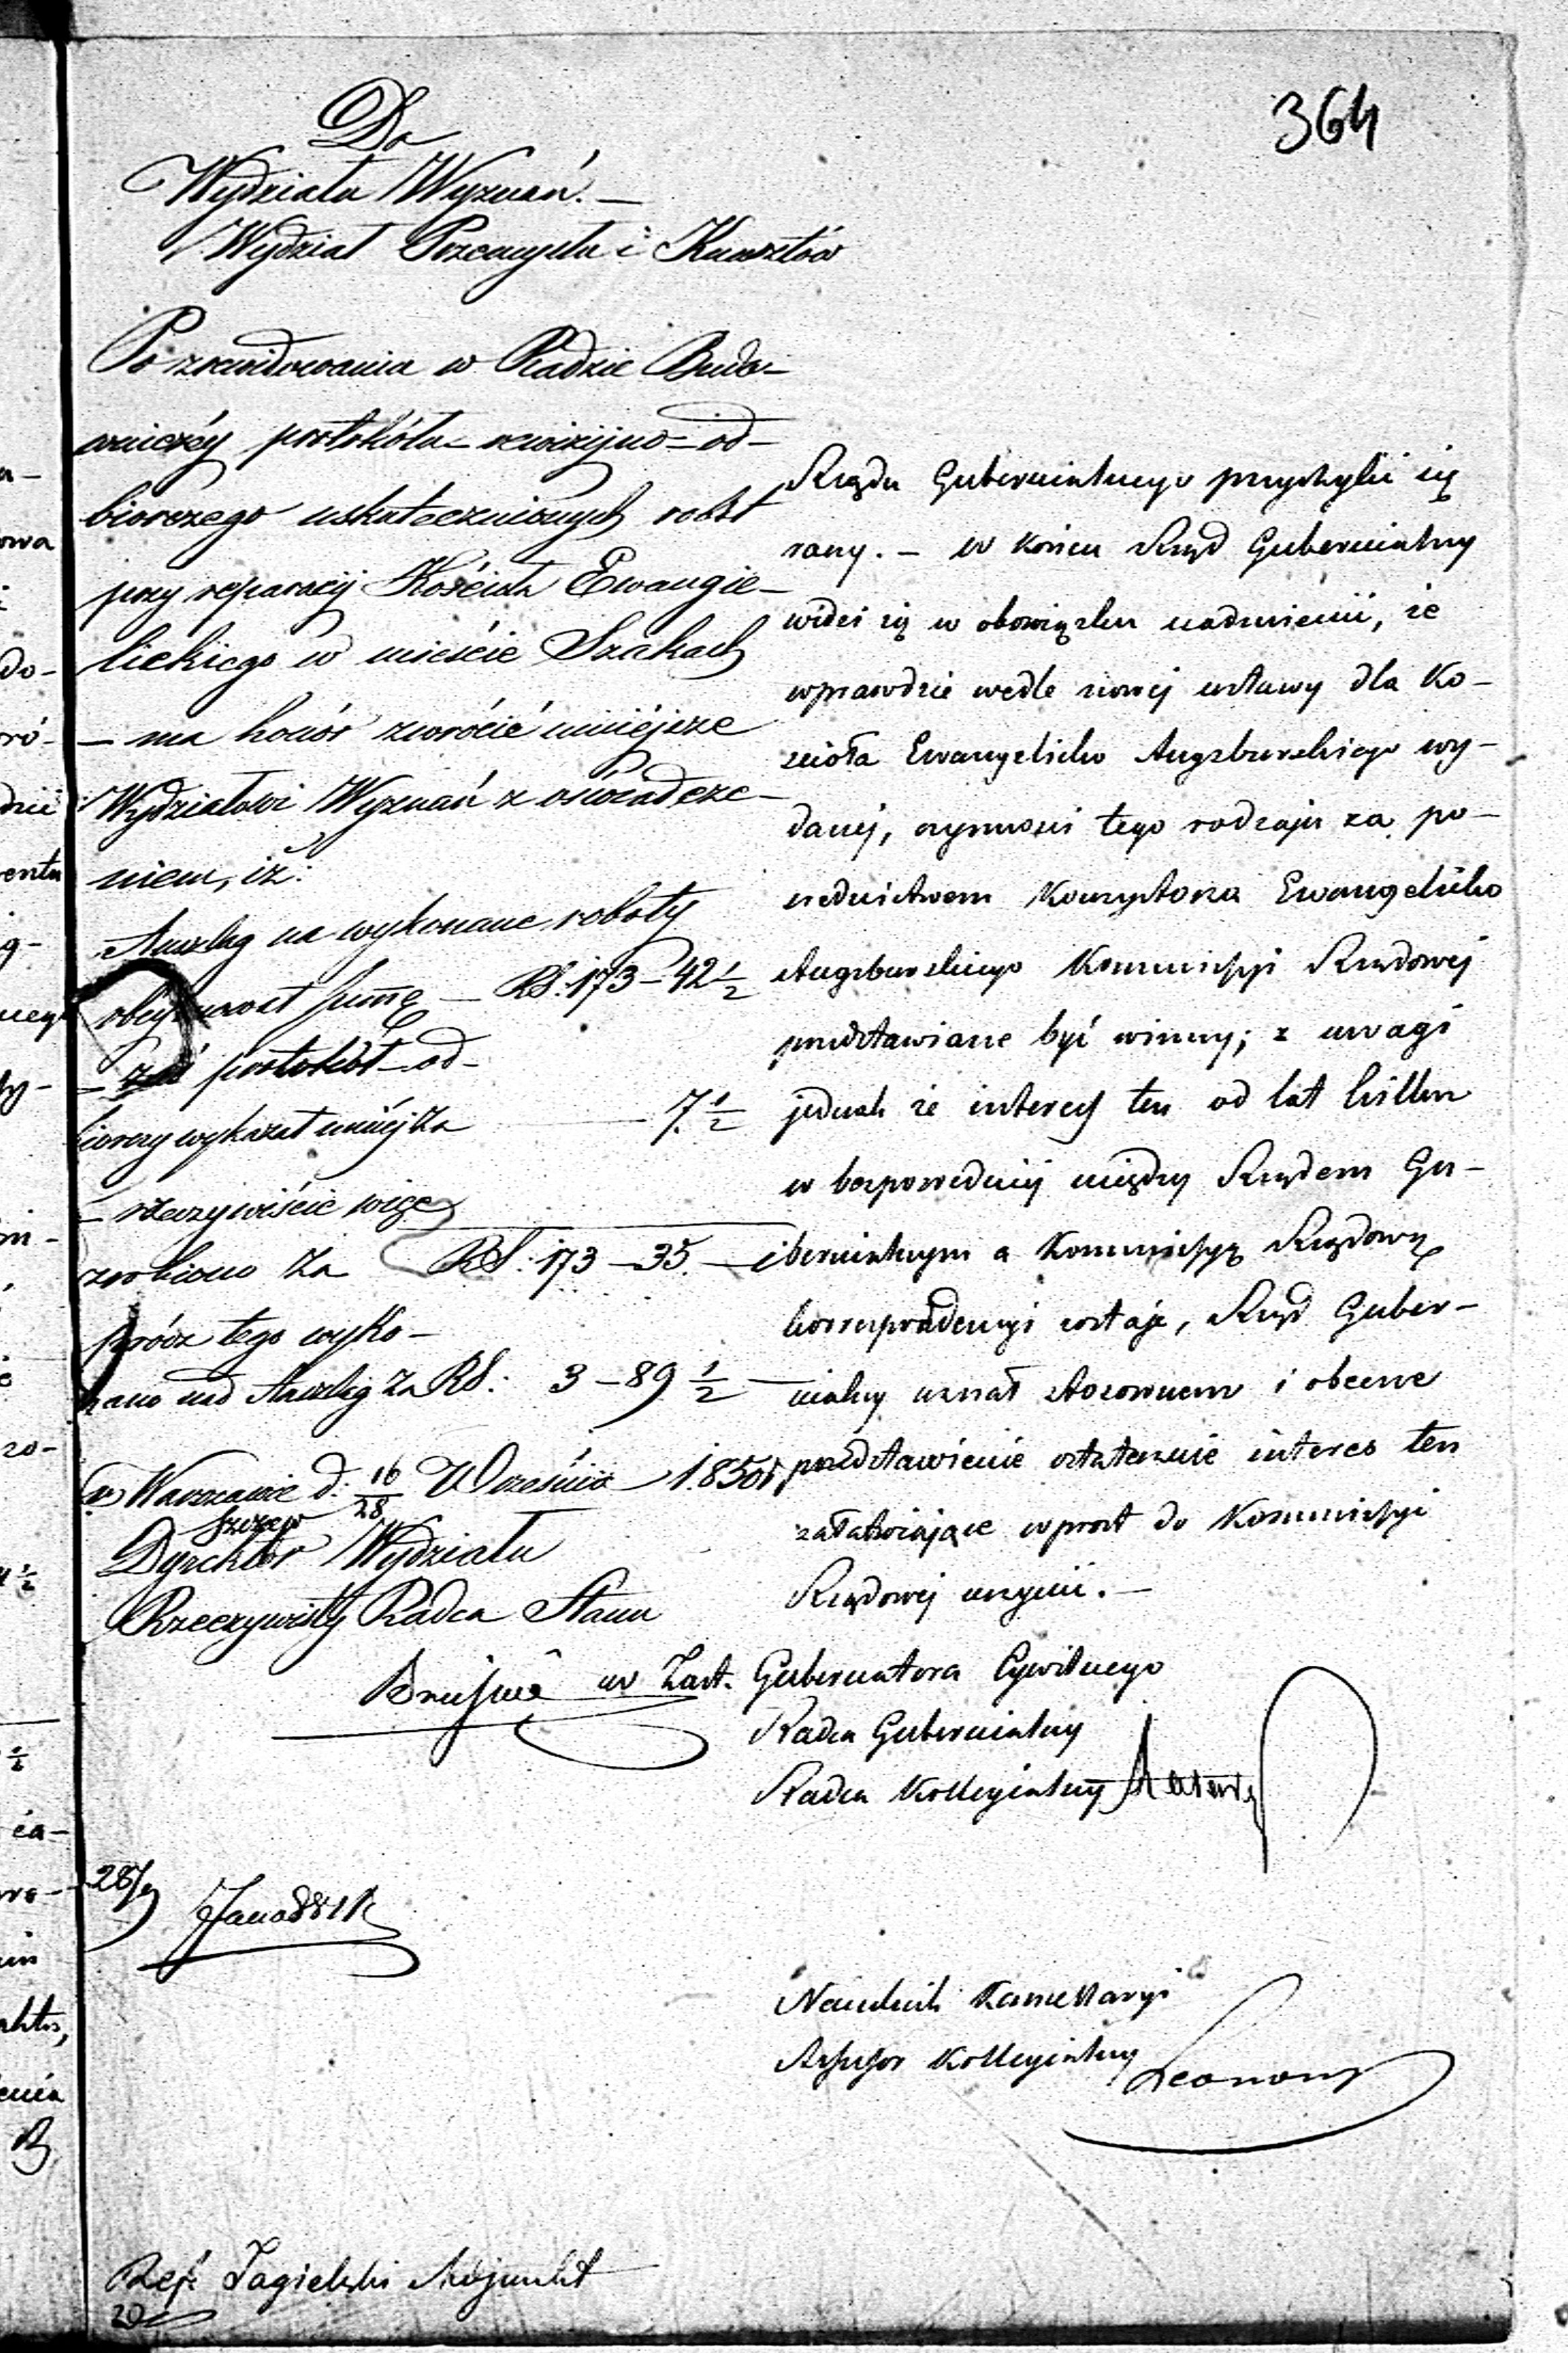 364
Do
Wydziału Wyznań. —
Wydział Przemysłu i Kunsztów
Po zrewidowaniu w Radzie Budo-
wniczéy protokółu rewizijno-od-
biorczego uskutecznionych robót
przy reparacij Kościoła Ewangie-
lickiego w mieście Szakach
— ma honór zwrócić niniéjsze
Wydziałowi Wyznań z oświadcze-
niem, iż:
Anszlag na wykonane roboty
obejmował summę — RS: 173 — 42 1/2
— zaś protokół od-
biorczy wykazał mniéj za — 7 1/2
— rzeczywiście więc
zrobiono za RS: 173 — 35. —
prócz tego wyko-
nano nad Anszlag za RS: 3 — 89 1/2 —
w Warszawie d: 16/28 Września 1850 r.
Dyrektor Wydziału
Rzeczywisty Radca Stanu
28/9
Rządu Gubernialnego przychylić się
raczy. — w końcu Rząd Gubernialny
widzi się w obowiązku nadmienić, że
wprawdzie wedle nowej ustawy dla Ko-
ścioła Ewangelicko Augsburskiego wy-
danej, czynności tego rodzaju za po-
średnictwem Konsystorza Ewangelicko
Augsburskiego Kommissyi Rządowej
przedstawiane być winny; z uwagi
jednak że interes ten od lat kilku
w bezpośredniej między Rządem Gu-
bernialnym a Kommissyą Rządową
korrespondencyi zostaje, Rząd Guber-
nialny uznał stosownem i obecne
przedstawienie ostatecznie interes ten
załatwiające wprost do Kommissyi
Rządowej uczynić. —
w Zast. Gubernatora Cywilnego
Radca Gubernialny
Radca Kollegialny
Naczelnik Kancellaryi
Assessor Kollegialny
Ref: Jagielski Adjunkt